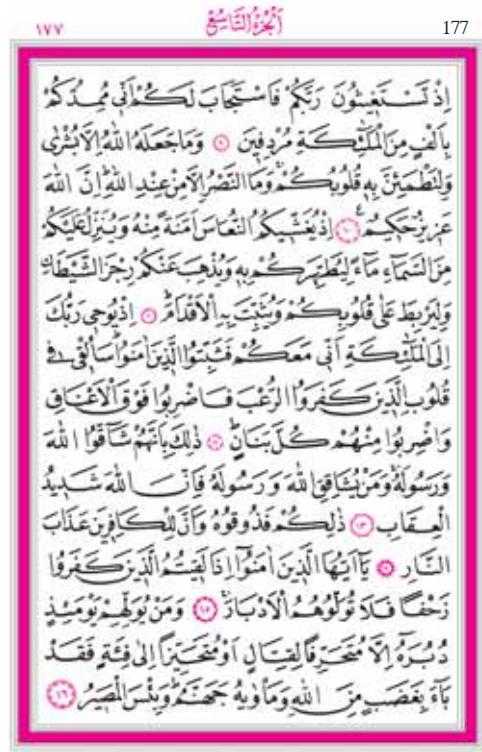 ١٧٧ اَلْجُزْءُ التَّاسِعُ 177
اِذْ تَسْتَغ۪يثُونَ رَبَّكُمْ فَاسْتَجَابَ لَكُمْ اَنّ۪ي مُمِدُّكُمْ
بِاَلْفٍ مِنَ الْمَلٰٓئِكَةِ مُرْدِف۪ينَ ﴿٩﴾ وَمَا جَعَلَهُ اللّٰهُ اِلَّا بُشْرٰى
وَلِتَطْمَئِنَّ بِه۪ قُلُوبُكُمْۚ وَمَا النَّصْرُ اِلَّا مِنْ عِنْدِ اللّٰهِۜ اِنَّ اللّٰهَ
عَز۪يزٌ حَك۪يمٌ۟ ﴿١٠﴾ اِذْ يُغَشّ۪يكُمُ النُّعَاسَ اَمَنَةً مِنْهُ وَيُنَزِّلُ عَلَيْكُمْ
مِنَ السَّمَٓاءِ مَٓاءً لِيُطَهِّرَكُمْ بِه۪ وَيُذْهِبَ عَنْكُمْ رِجْزَ الشَّيْطَانِ
وَلِيَرْبِطَ عَلٰى قُلُوبِكُمْ وَيُثَبِّتَ بِهِ الْاَقْدَامَۜ ﴿١١﴾ اِذْ يُوح۪ي رَبُّكَ
اِلَى الْمَلٰٓئِكَةِ اَنّ۪ي مَعَكُمْ فَثَبِّتُوا الَّذ۪ينَ اٰمَنُواۜ سَاُلْق۪ي ف۪ي
قُلُوبِ الَّذ۪ينَ كَفَرُوا الرُّعْبَ فَاضْرِبُوا فَوْقَ الْاَعْنَاقِ
وَاضْرِبُوا مِنْهُمْ كُلَّ بَنَانٍۜ ﴿١٢﴾ ذٰلِكَ بِاَنَّهُمْ شَٓاقُّوا اللّٰهَ
وَرَسُولَهُۚ وَمَنْ يُشَاقِقِ اللّٰهَ وَرَسُولَهُ فَاِنَّ اللّٰهَ شَد۪يدُ
الْعِقَابِ ﴿١٣﴾ ذٰلِكُمْ فَذُوقُوهُ وَاَنَّ لِلْكَافِر۪ينَ عَذَابَ
النَّارِ ﴿١٤﴾ يَٓا اَيُّهَا الَّذ۪ينَ اٰمَنُٓوا اِذَا لَق۪يتُمُ الَّذ۪ينَ كَفَرُوا
زَحْفًا فَلَا تُوَلُّوهُمُ الْاَدْبَارَۚ ﴿١٥﴾ وَمَنْ يُوَلِّهِمْ يَوْمَئِذٍ
دُبُرَهُٓ اِلَّا مُتَحَرِّفًا لِقِتَالٍ اَوْ مُتَحَيِّزًا اِلٰى فِئَةٍ فَقَدْ
بَٓاءَ بِغَضَبٍ مِنَ اللّٰهِ وَمَأْوٰيهُ جَهَنَّمُۜ وَبِئْسَ الْمَص۪يرُ ﴿١٦﴾